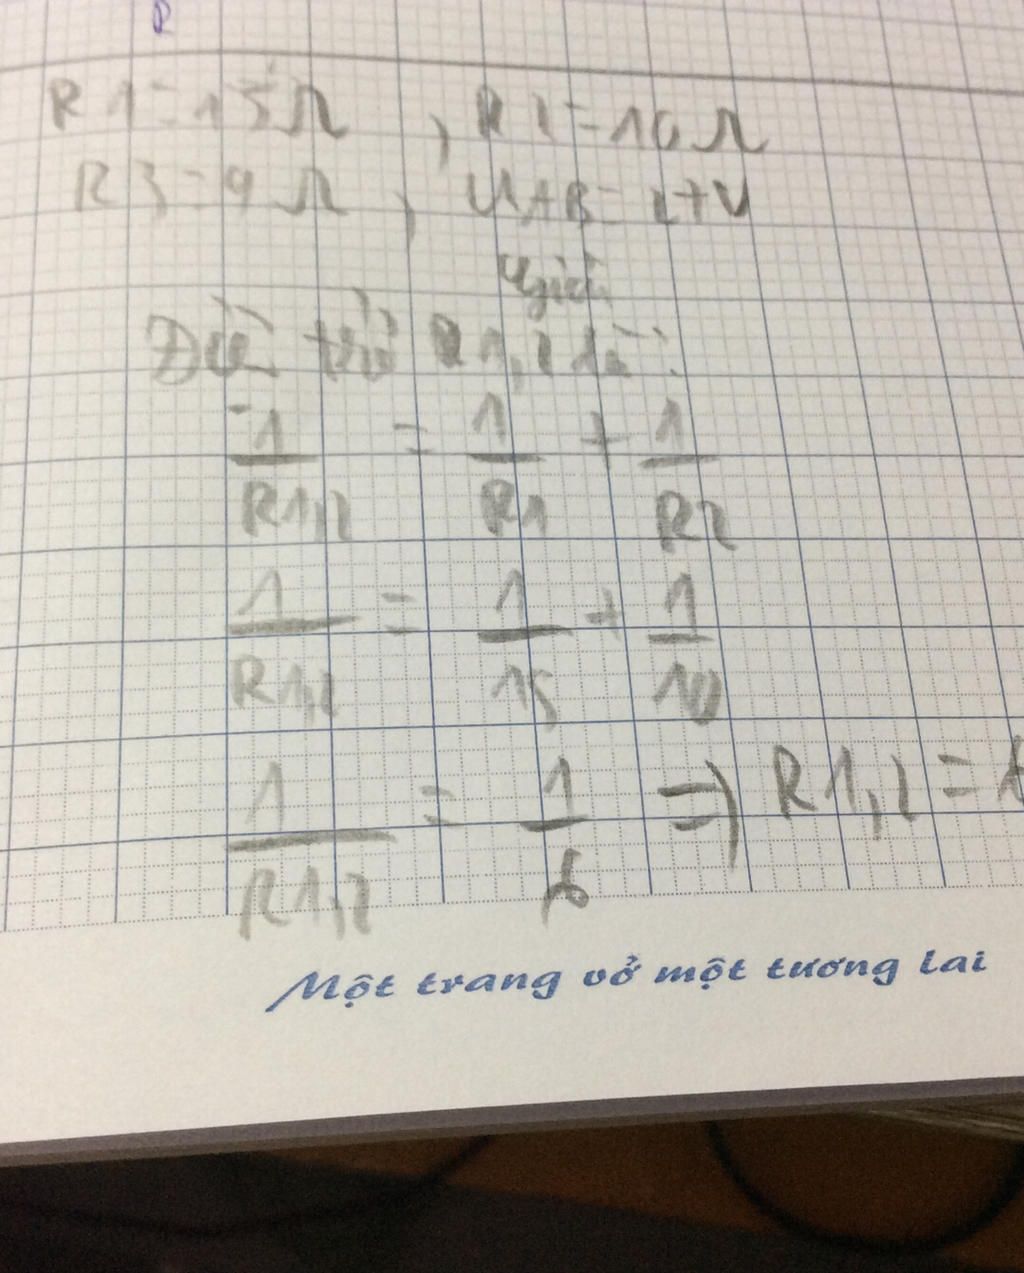 R1=15Ω, R2=10Ω
R3=9Ω, UAB=27V
giải
Điện trở R1,2 là:
1/R1,2 = 1/R1 + 1/R2
1/R1,2 = 1/15 + 1/10
1/R1,2 = 1/6 => R1,2 =
Một trang vở một tương lai